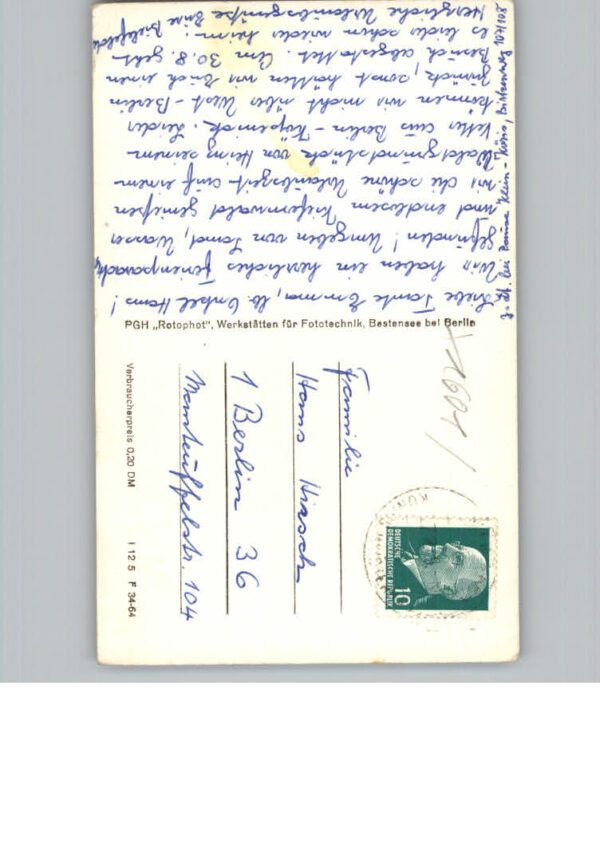 Liebe Tante Emma, lb. Onkel Hans!
Wir haben ein herrliches Ferienparadies
gefunden! Umgeben von Sand, Wasser
und endlosem Kiefernwald genießen
wir die schöne Urlaubszeit auf einem
Waldgrundstück von Heinz seinem
Vetter aus Berlin-Köpenick. Leider
können wir nicht über West-Berlin
zurück, sonst hätten wir Euch einen
Besuch abgestattet. Am 30.8. geht
es leider schon wieder heim.
Herzliche Urlaubsgrüße Eure Bielefelder
z. Zt. bei Klein-Köris, Birkenweg 107/108
PGH „Rotophot“, Werkstätten für Fototechnik, Bestensee bei Berlin
Familie
Hans Hirsch
1 Berlin 36
Manteuffelstr. 104
Verbraucherpreis 0,20 DM
I 12 5 F 34-64
DEUTSCHE
DEMOKRATISCHE REPUBLIK
10